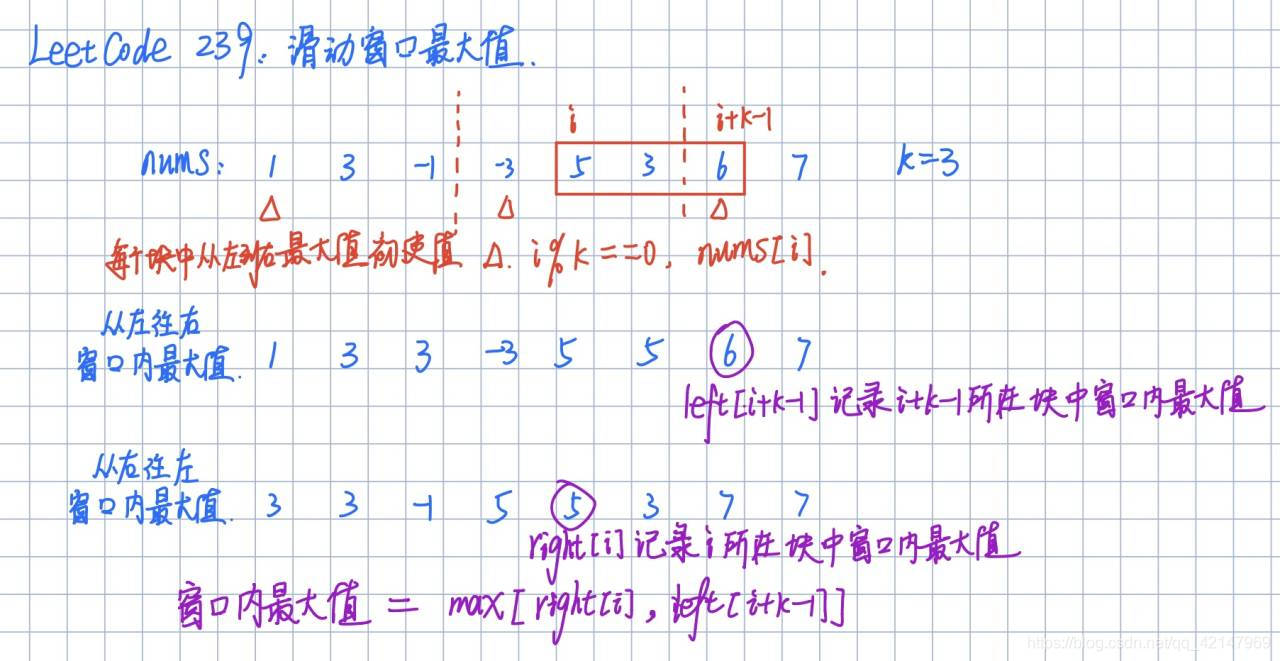 LeetCode 239：滑动窗口最大值.
i i+k-1
nums: 1 3 -1 -3 5 3 6 7 k=3
Δ Δ Δ
每个块中从左到右最大值初使值 Δ. i%k==0, nums[i].
从左往右
窗口内最大值. 1 3 3 -3 5 5 6 7
left[i+k-1]记录i+k-1所在块中窗口内最大值
从右往左
窗口内最大值. 3 3 -1 5 5 3 7 7
right[i]记录i所在块中窗口内最大值
窗口内最大值 = max[right[i], left[i+k-1]]
https://blog.csdn.net/qq_42147969